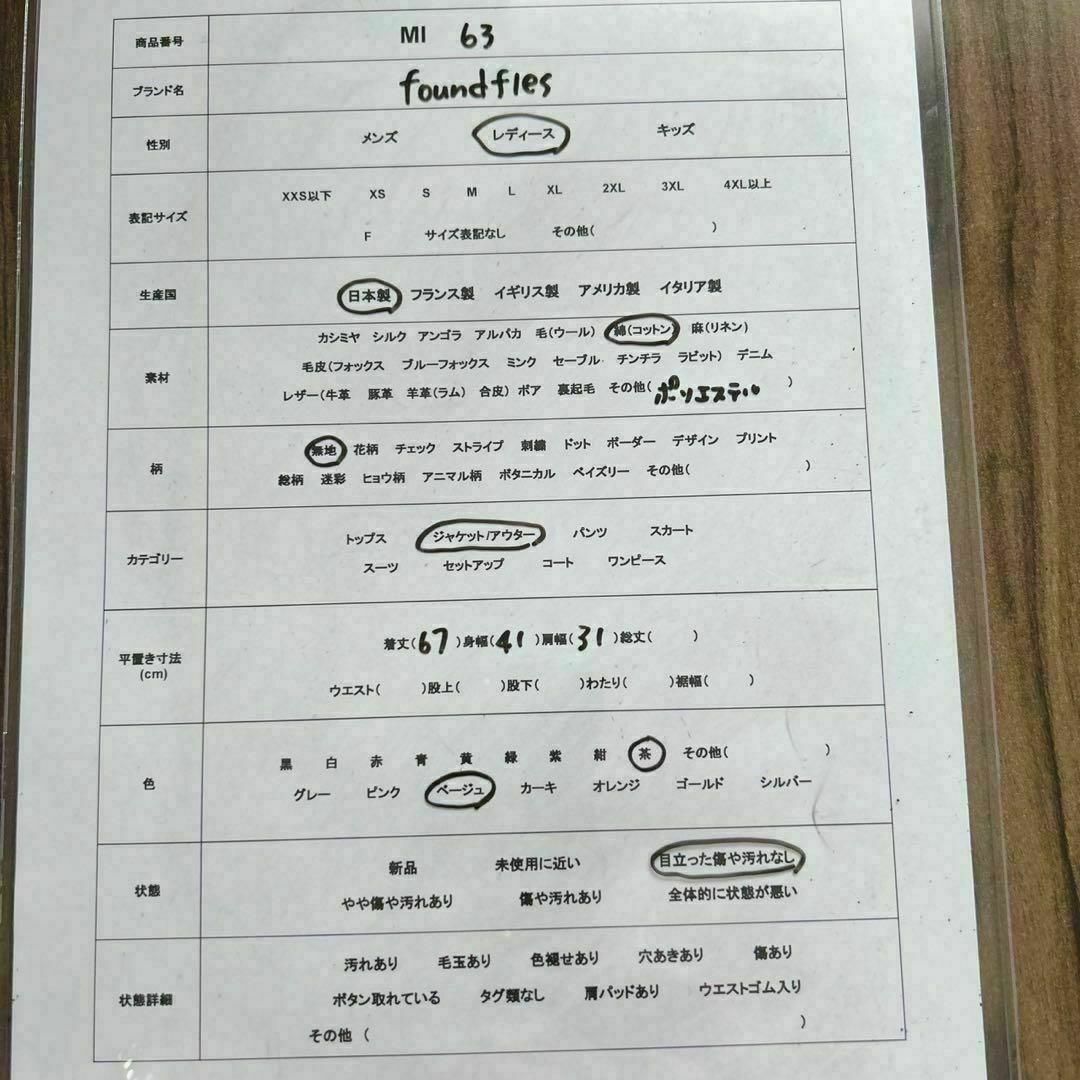 商品番号 MI 63
ブランド名 foundfles
性別 メンズ レディース キッズ
表記サイズ
XXS以下 XS S M L XL 2XL 3XL 4XL以上
F サイズ表記なし その他( )
生産国 日本製 フランス製 イギリス製 アメリカ製 イタリア製
素材
カシミヤ シルク アンゴラ アルパカ 毛(ウール) 綿(コットン) 麻(リネン)
毛皮(フォックス ブルーフォックス ミンク セーブル チンチラ ラビット) デニム
レザー(牛革 豚革 羊革(ラム) 合皮) ボア 裏起毛 その他(ポリエステル )
柄
無地 花柄 チェック ストライプ 刺繍 ドット ボーダー デザイン プリント
総柄 迷彩 ヒョウ柄 アニマル柄 ボタニカル ペイズリー その他( )
カテゴリー
トップス ジャケット/アウター パンツ スカート
スーツ セットアップ コート ワンピース
平置き寸法
(cm)
着丈(67)身幅(41)肩幅(31)総丈( )
ウエスト( )股上( )股下( )わたり( )裾幅( )
色
黒 白 赤 青 黄 緑 紫 紺 茶 その他( )
グレー ピンク ベージュ カーキ オレンジ ゴールド シルバー
状態
新品 未使用に近い 目立った傷や汚れなし
やや傷や汚れあり 傷や汚れあり 全体的に状態が悪い
状態詳細
汚れあり 毛玉あり 色褪せあり 穴あきあり 傷あり
ボタン取れている タグ類なし 肩パッドあり ウエストゴム入り
その他 ( )